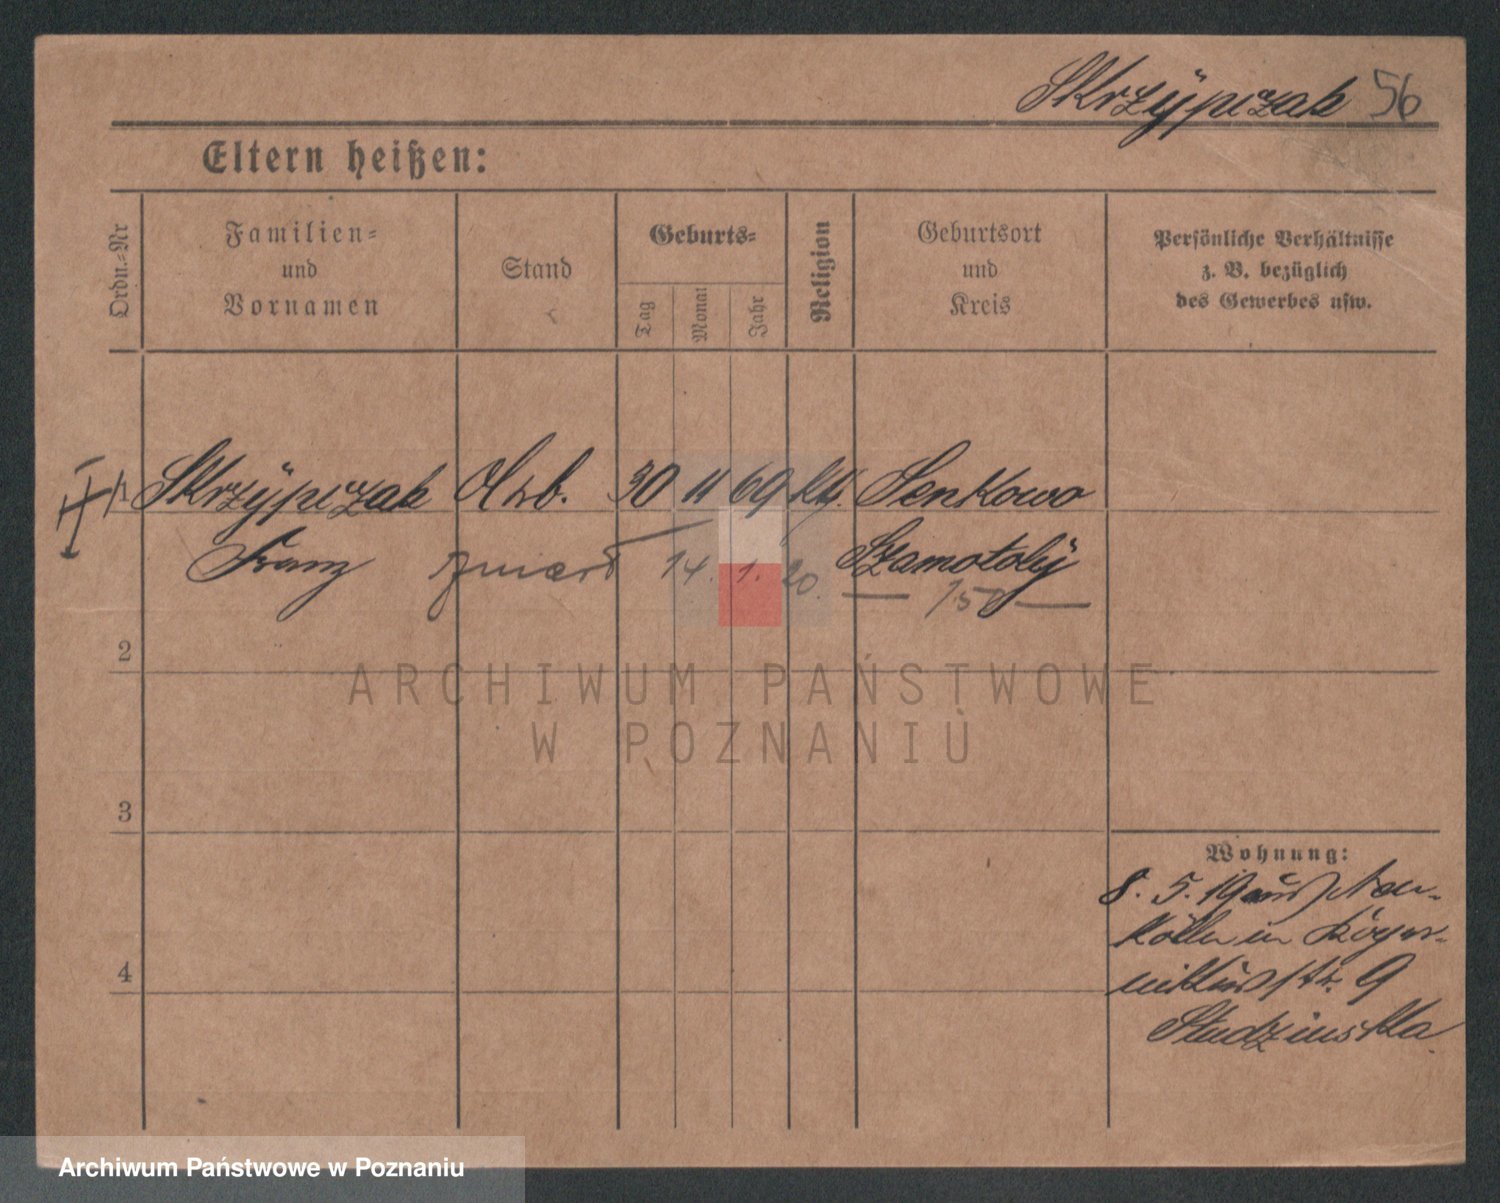 Skrzÿpczak 56
Eltern heißen:
Ordn.-Nr
Familien-
und
Vornamen
Stand
Geburts-
Tag
Monat
Jahr
Religion
Geburtsort
und
Kreis
Persönliche Verhältnisse
z. B. bezüglich
des Gewerbes usw.
1 Skrzÿpczak Arb. 30 11 69 kth. Senkowo
Franz zmarł 14. 1. 20. Szamotoly
150
2
3
4
Wohnung:
8. 5. 19 aus Neu-
kölln in
str. 9
Studzinska
ARCHIWUM PAŃSTWOWE
W POZNANIU
Archiwum Państwowe w Poznaniu